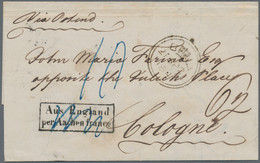 Via Ostend
John Maria Farina Esq
opposite the Julichs Place
Aus England
per Aachen franco
Cologne.